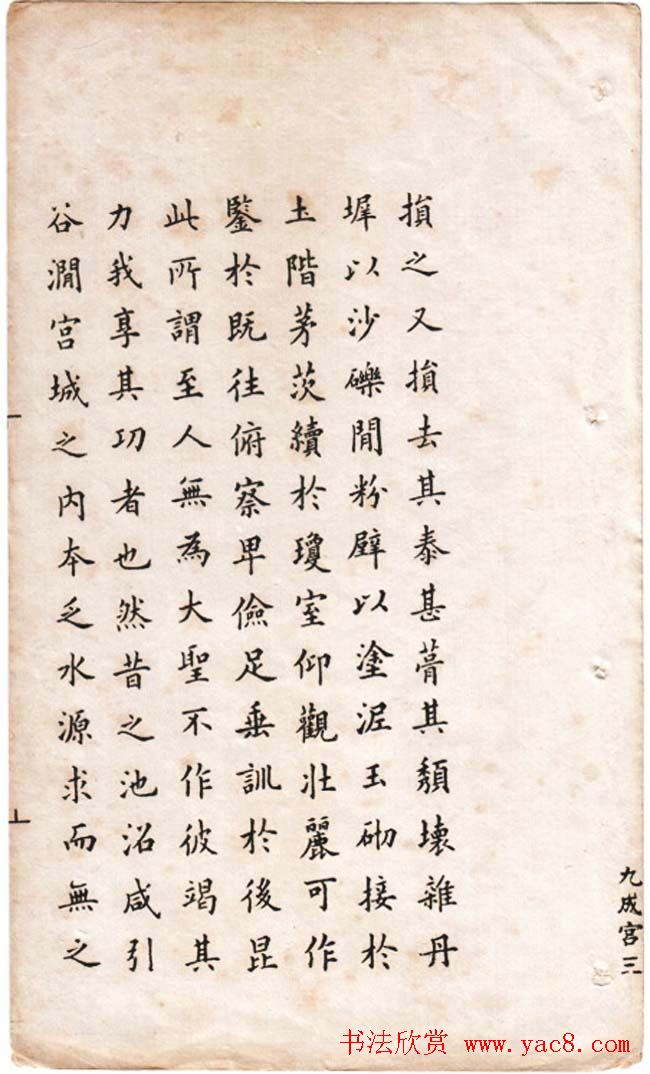 九成宮三
損之又損去其泰甚葺其頹壞雜丹
墀以沙礫閒粉壁以塗泥玉砌接於
土階茅茨續於瓊室仰觀壯麗可作
鑒於既往俯察卑儉足垂訓於後昆
此所謂至人無為大聖不作彼竭其
力我享其功者也然昔之池沼咸引
谷澗宮城之內本乏水源求而無之
书法欣赏 www.yac8.com